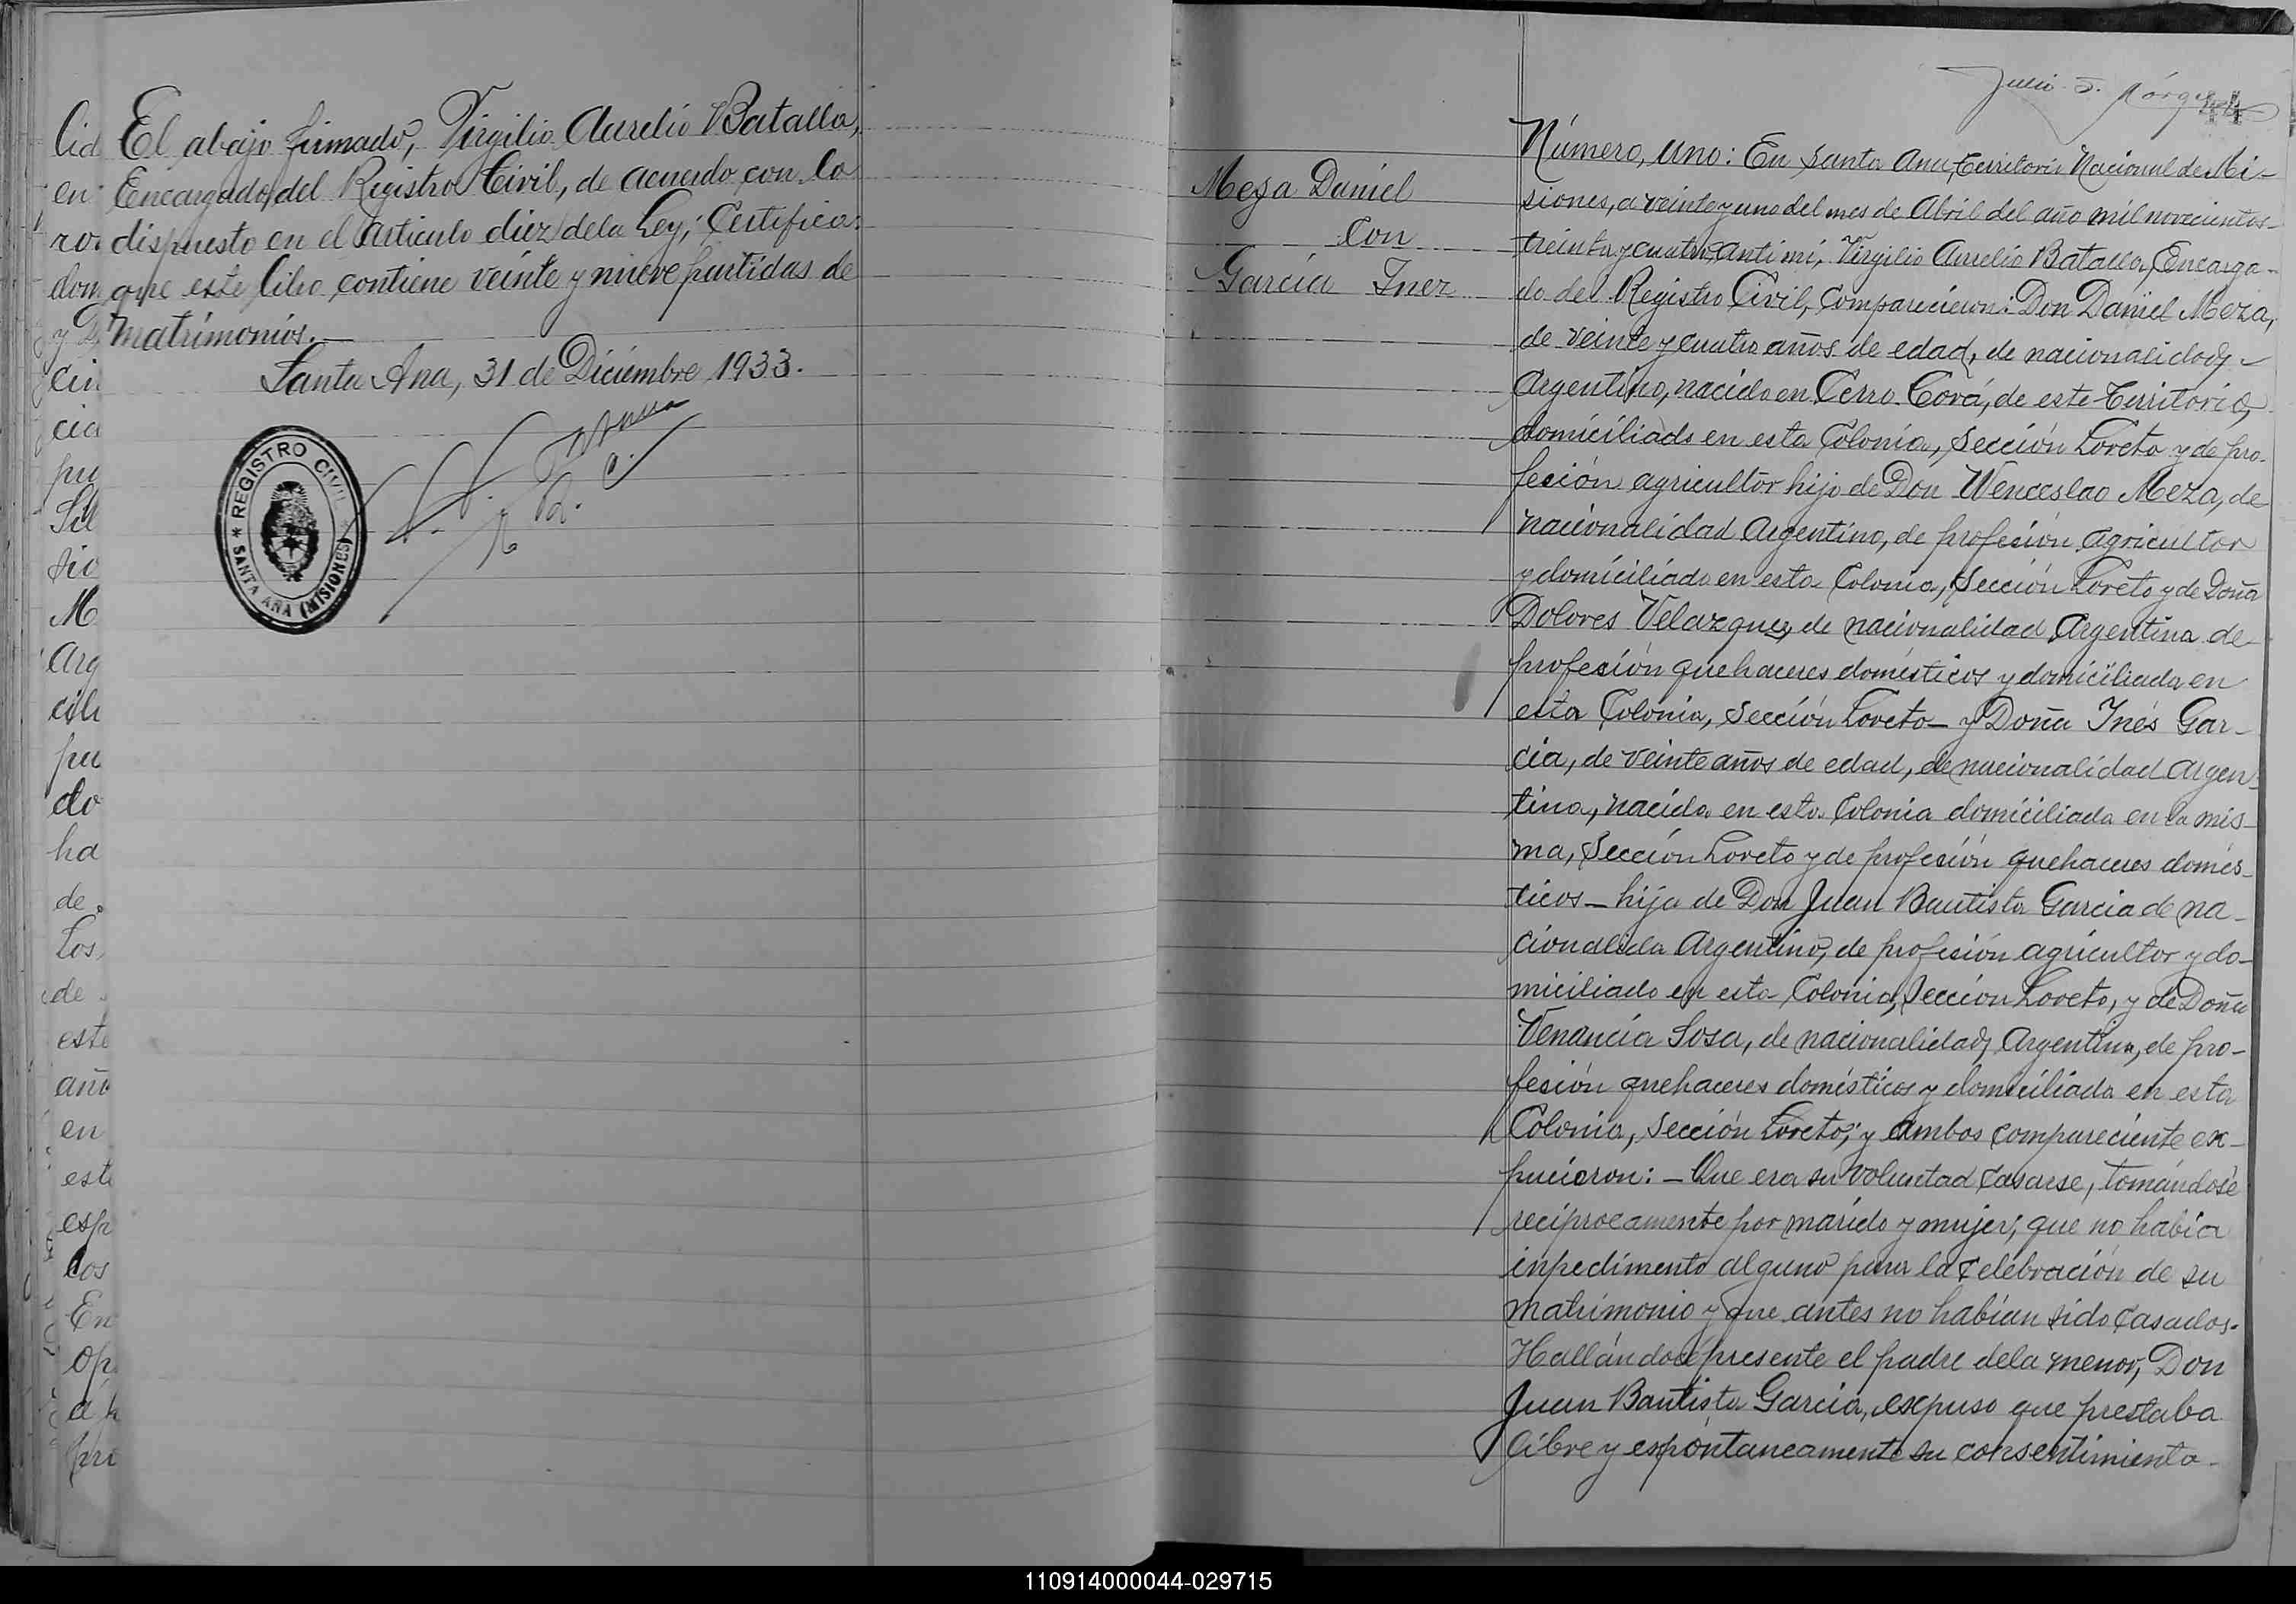 El abajo firmado, Virgilio Aurelio Batalla,
Encargado del Registro Civil, de acuerdo con lo
dispuesto en el articulo diez dela Ley; Certifica:
que este libro contiene veinte y nueve partidas de
matrimonios.—
Santa Ana, 31 de Diciembre 1933.
* REGISTRO CIVIL *
SANTA ANA (MISIONES)
lid
en
ror
dom
cin
cia
pro
Sil
sio
M
Arg
cili
pu
do
ha
de
Los
de
este
año
en
este
esp
los
En
op
á
pri
44
Meza Daniel
con
García Inez
Número, uno: En Santa Ana, Territorio Nacional de Mi-
siones, a veinte y uno del mes de Abril del año mil novecientos
treinta y cuatro, anti mi, Virgilio Aurelio Batalla, Encarga-
do del Registro Civil, comparecieron: Don Daniel Meza,
de veinte y cuatro años de edad, de nacionalidad
Argentino, nacido en Cerro Corá, de este Territorio,
domiciliado en esta Colonia, Sección Loreto y de pro-
fesión agricultor hijo de Don Wenceslao Meza, de
nacionalidad Argentino, de profesión agricultor
y domiciliado en esta Colonia, Sección Loreto y de Doña
Dolores Velazquez, de nacionalidad Argentina de
profesión quehaceres domésticos y domiciliada en
esta Colonia, Sección Loreto — y Doña Inés Gar-
cia, de veinte años de edad, de nacionalidad Argen-
tina, nacida en esta Colonia domiciliada en la mis-
ma, Sección Loreto y de profesión quehaceres domés-
ticos — hija de Don Juan Bautista Garcia de na-
cionalida Argentino, de profesión agricultor y do-
miciliado en esta Colonia, Sección Loreto, y de Doña
Venancia Sosa, de nacionalidad Argentina, de pro-
fesión quehaceres domésticos y domiciliada en esta
Colonia, Sección Loreto; y ambos compareciente ex-
pucieron: — Que era su voluntad casarse, tomándose
recíprocamente por marido y mujer; que no habia
inpedimento alguno para la celebración de su
matrimonio y que antes no habían sido casados.
Hallándose presente el padre dela menor, Don
Juan Bautista Garcia, expuso que prestaba
libre y espontaneamente su consentimiento-
110914000044-029715